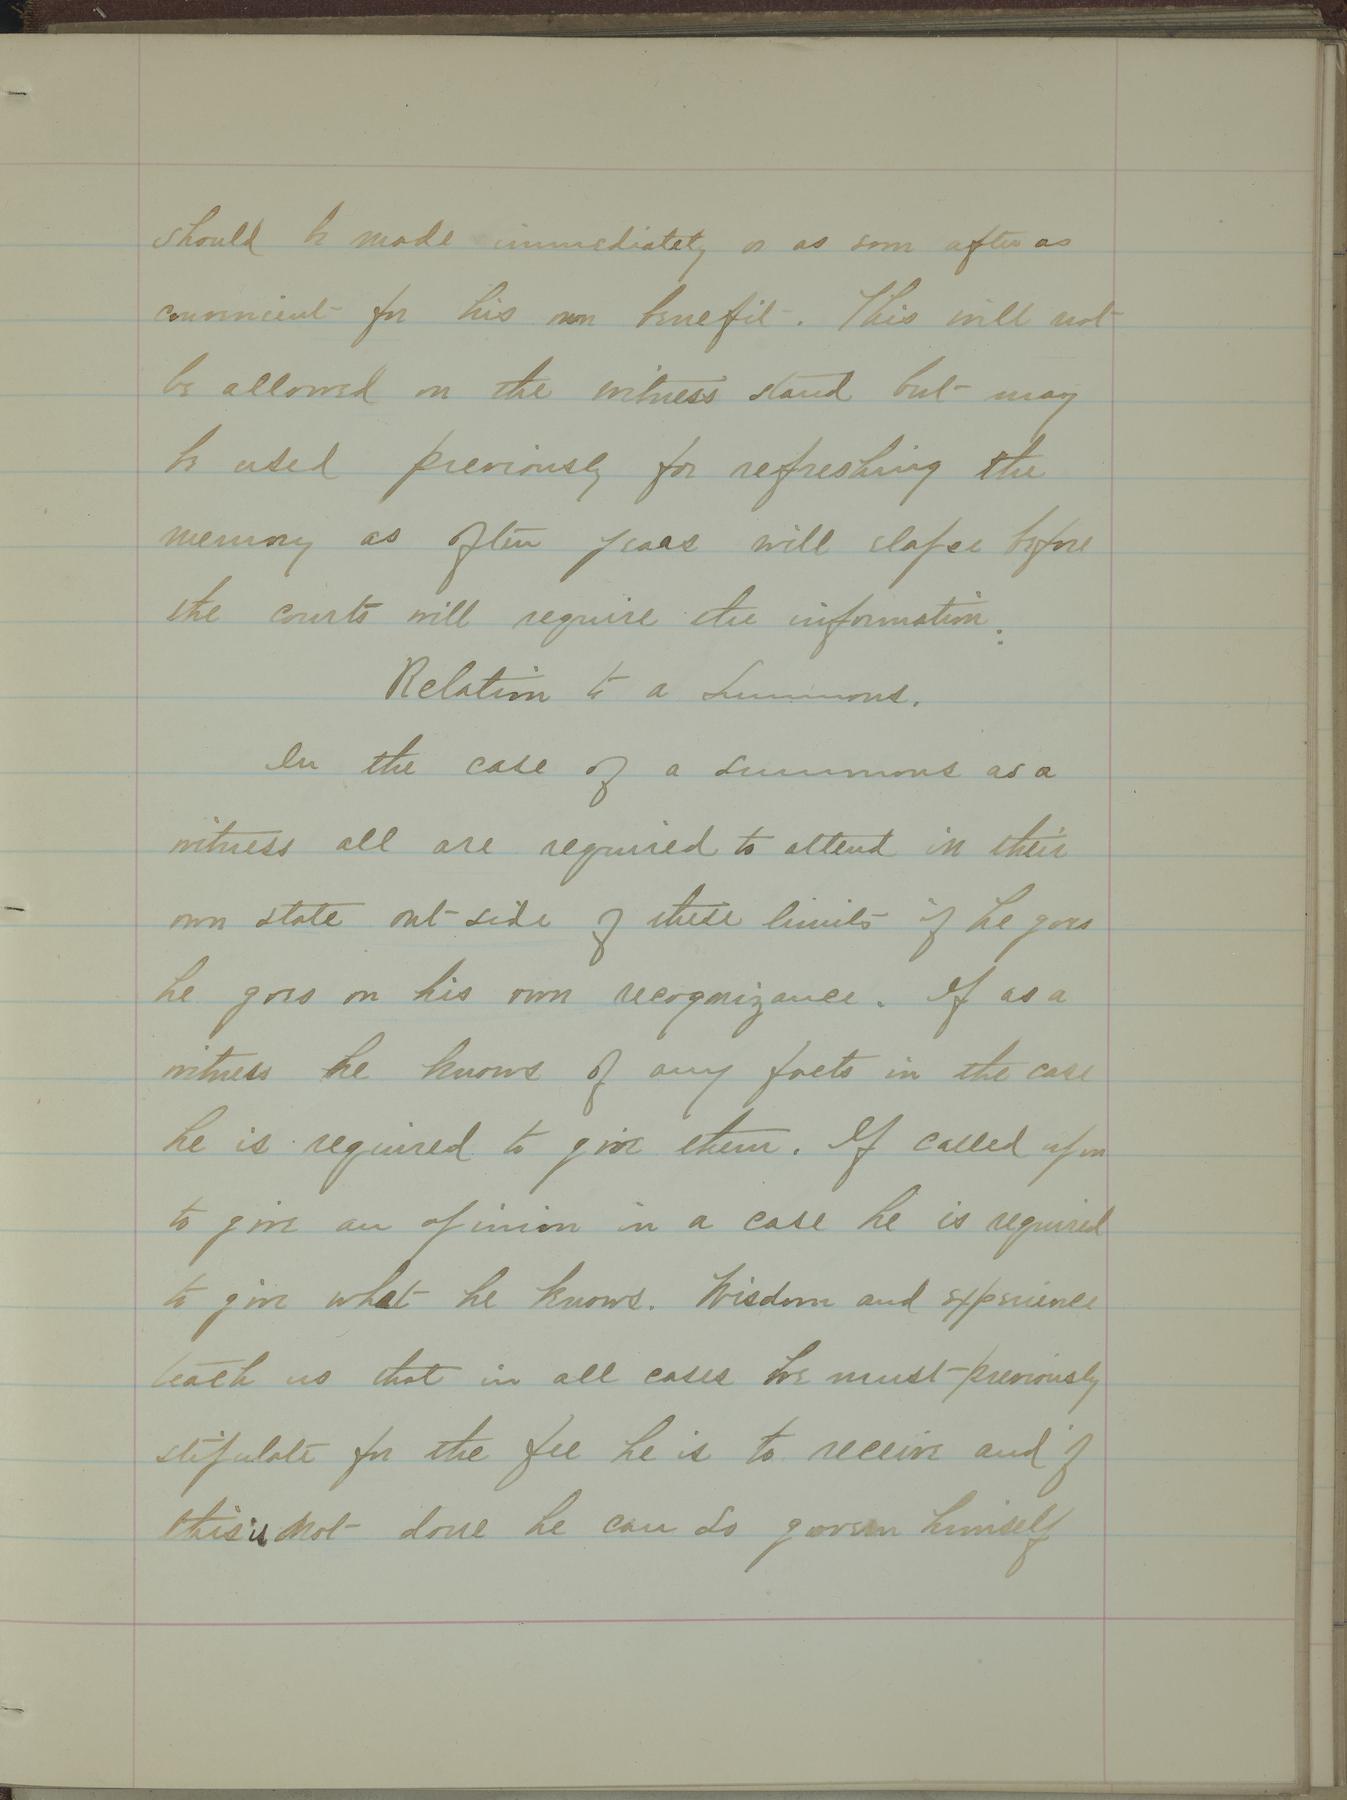 should be made immediately or as soon after as
convenient for his own benefit. This will not
be allowed on the witness stand but may
be used previously for refreshing the
memory as often years will elapse before
the courts will require the information.
Relation to a Summons.
In the case of a summons as a
witness all are required to attend in their
own state out-side of these limits if he goes
he goes on his own recognizance. If as a
witness he knows of any facts in the case
he is required to give them. If called upon
to give an opinion in a case he is required
to give what he knows. Wisdom and experience
teach us that in all cases he must previously
stipulate for the fee he is to receive and if
this is not done he can so govern himself